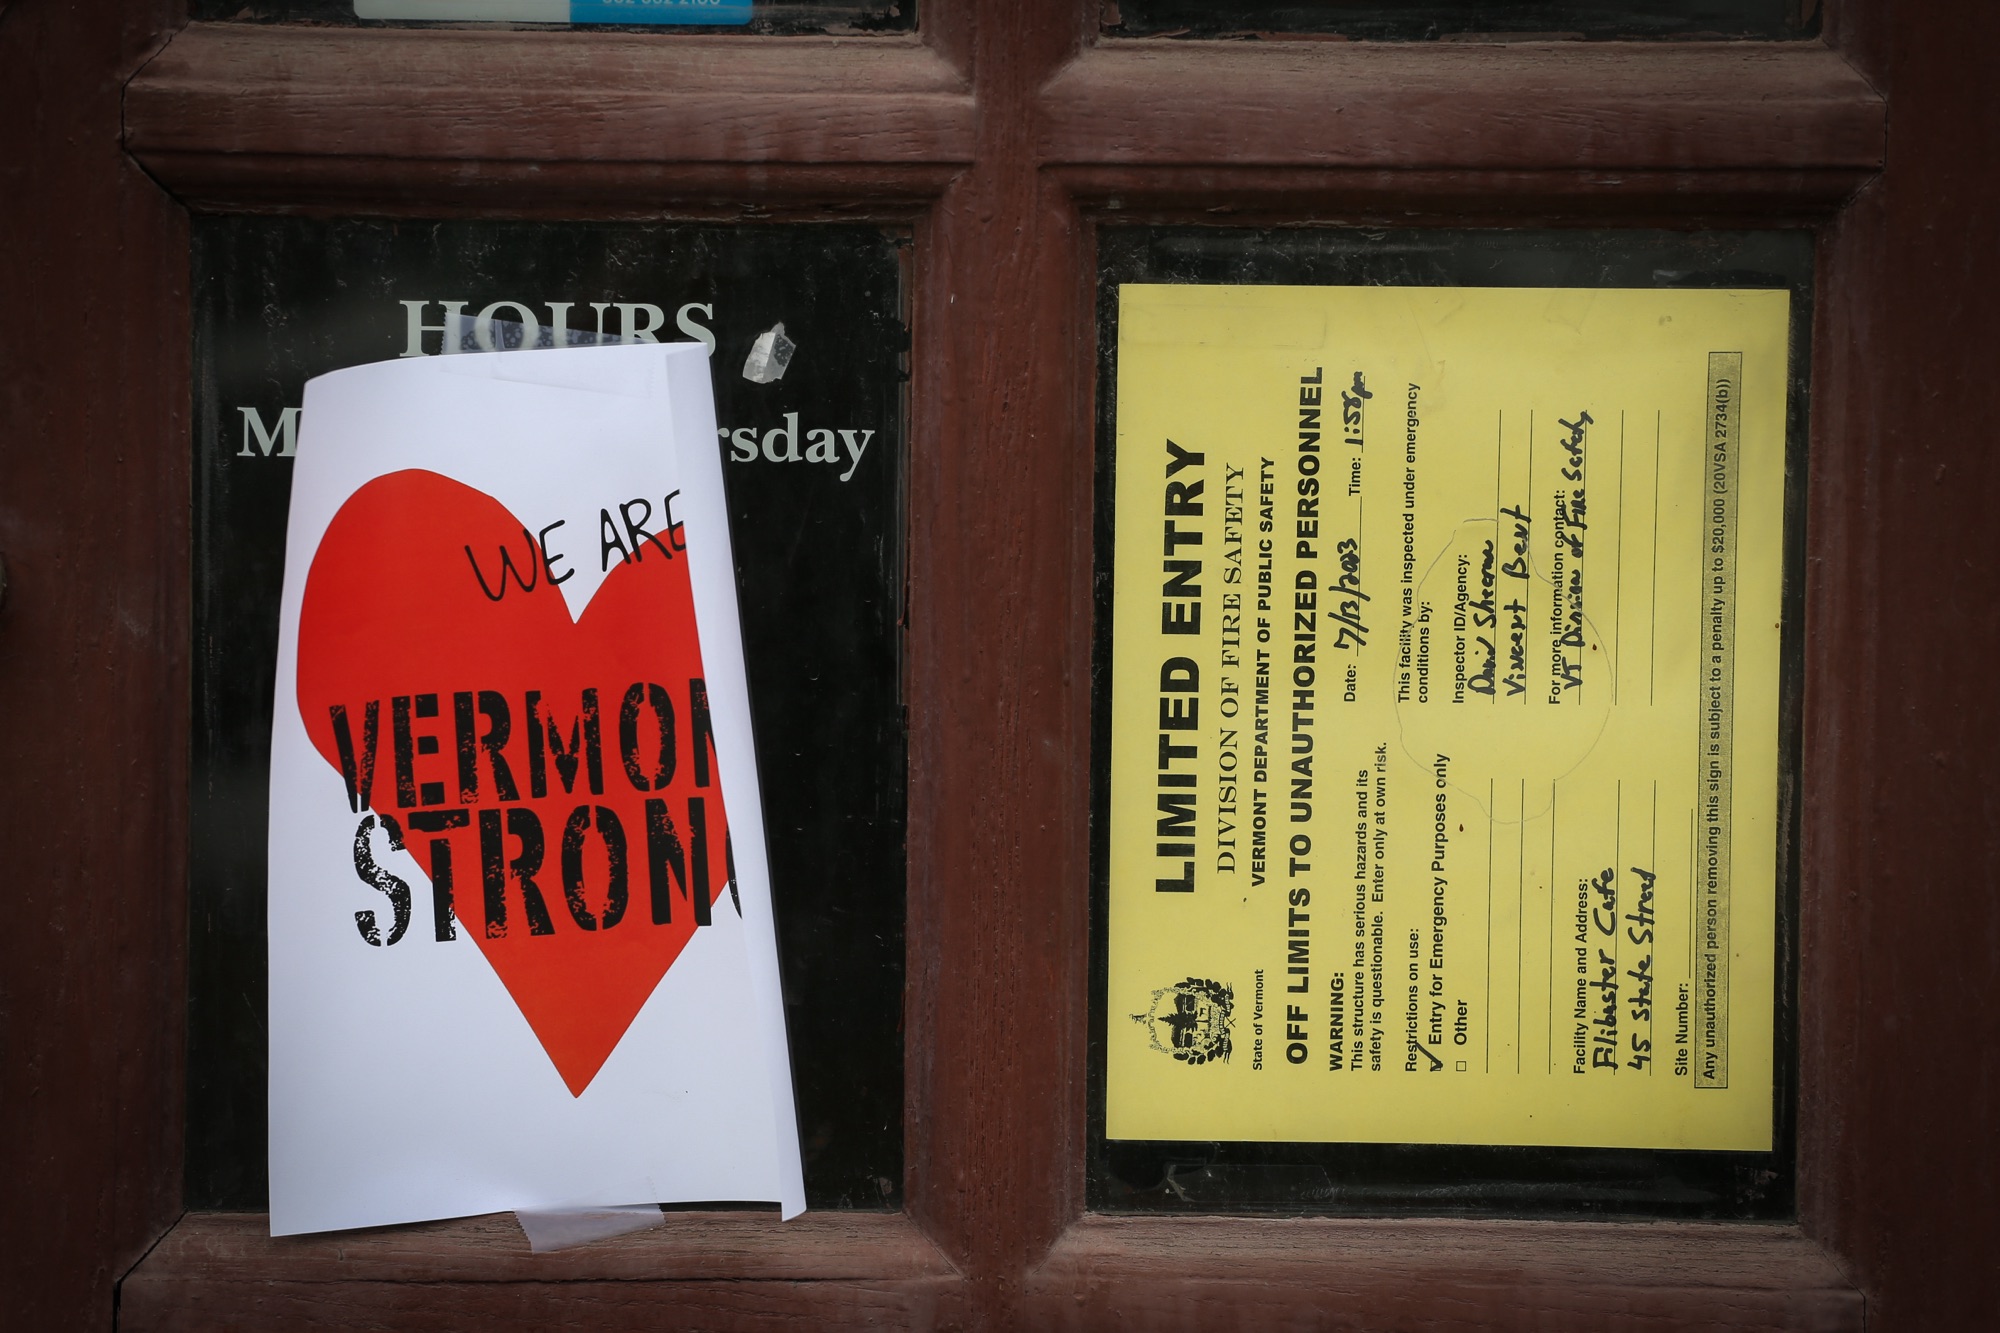 HOURS
M rsday
WE ARE
VERMON
STRONG
LIMITED ENTRY
DIVISION OF FIRE SAFETY
VERMONT DEPARTMENT OF PUBLIC SAFETY
State of Vermont
OFF LIMITS TO UNAUTHORIZED PERSONNEL
WARNING:
This structure has serious hazards and its
safety is questionable. Enter only at own risk.
Restrictions on use:
✓ Entry for Emergency Purposes only
□ Other
Facility Name and Address:
Filibaster Cafe
45 State Street
Site Number:
Date: 7/13/2023 Time: 1:58pm
This facility was inspected under emergency
conditions by:
Inspector ID/Agency:
David Sheeran
Vincent Bent
For more information contact:
VT Division of Fire Safety
Any unauthorized person removing this sign is subject to a penalty up to $20,000 (20VSA 2734(b))